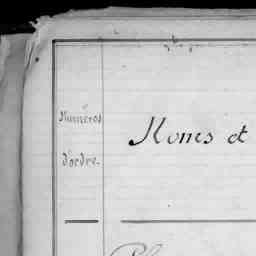 Numéros
d'ordre.
Noms et